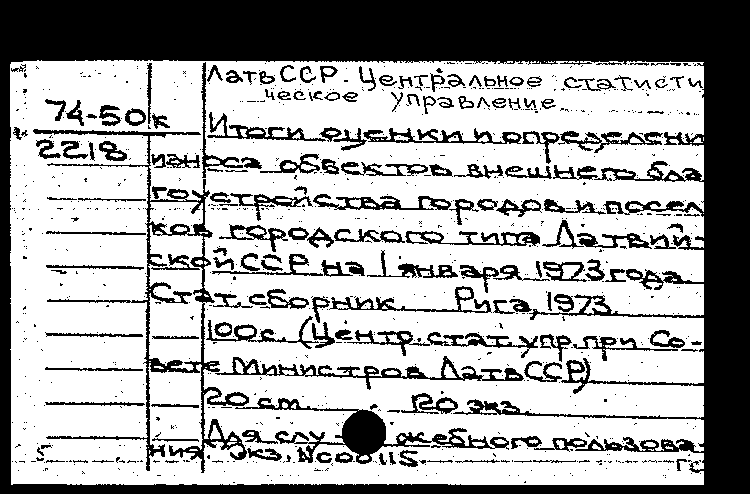 ЛатвССР. Центральное статисти
ческое управление.
74-50к
2218
Итоги оценки и определени
износа объектов внешнего бла
гоустройства городов и посел
ков городского типа Латвий-
ской ССР на 1 января 1973 года.
Стат. сборник. Рига, 1973.
100с. (Центр. стат. упр. при Со-
вете Министров ЛатвССР)
20 см. 120 экз.
Для служебного пользова-
ния. Экз. №000115.
5 ГС